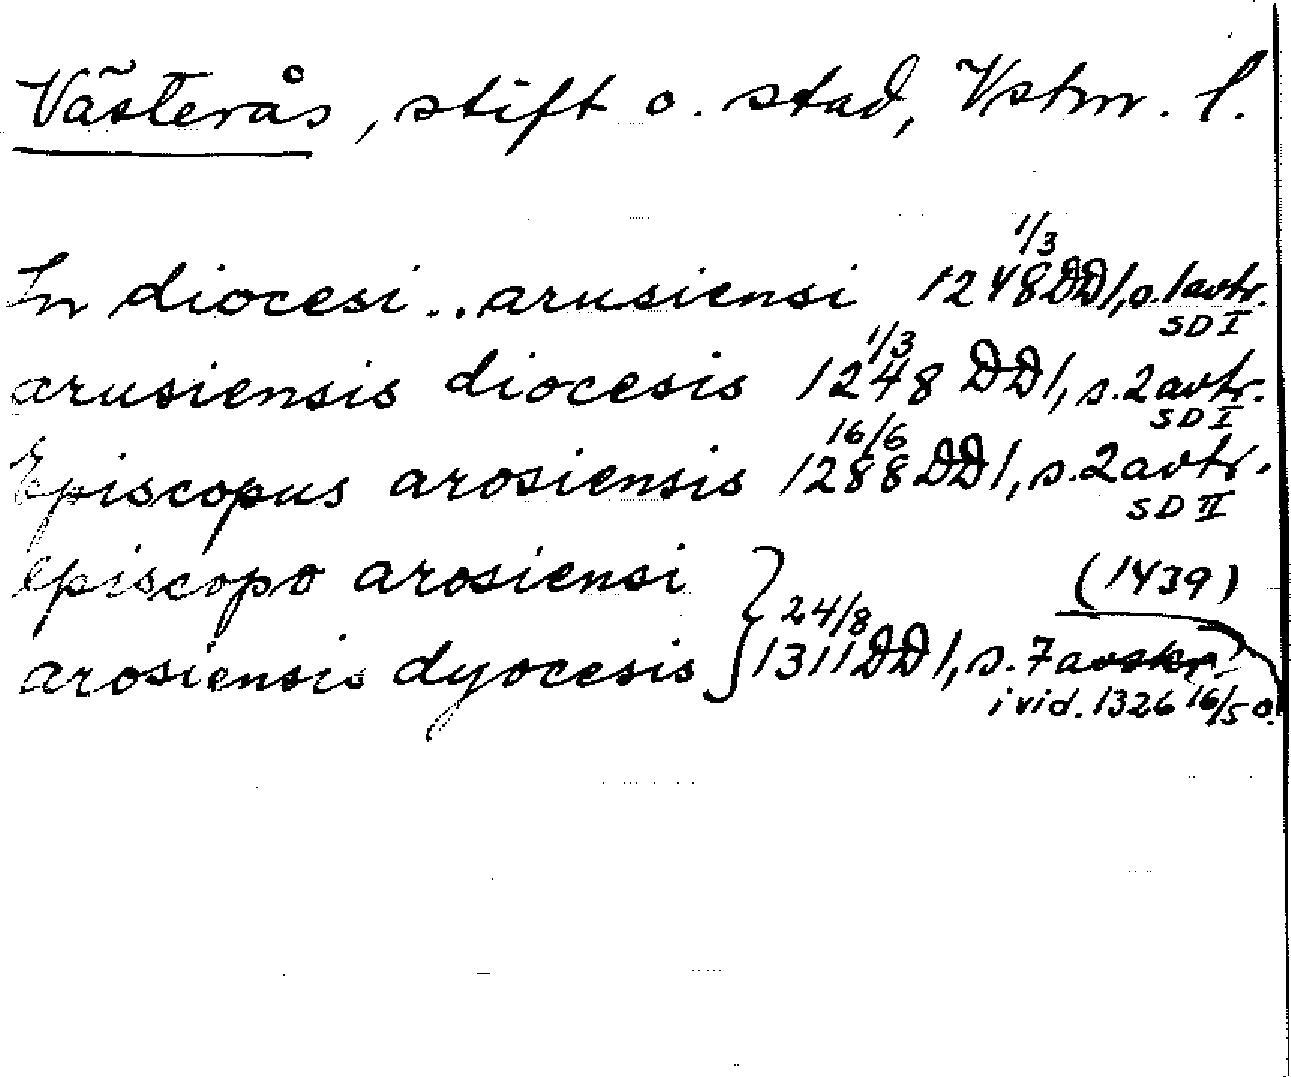 Västerås, stift o. stad, Vstm. l.
In diocesi .. arusiensi 1248 1/3 DD1, s. 1 avtr. SD I
arusiensis diocesis 1248 1/3 DD1, s. 2 avtr. SD I
Episcopus arosiensis 1288 16/6 DD1, s. 2 avtr. SD II
episcopo arosiensi
arosiensis dyocesis } 1311 24/8 DD1, s. 7 avskr. (1439)
i vid. 1326 16/5 o.